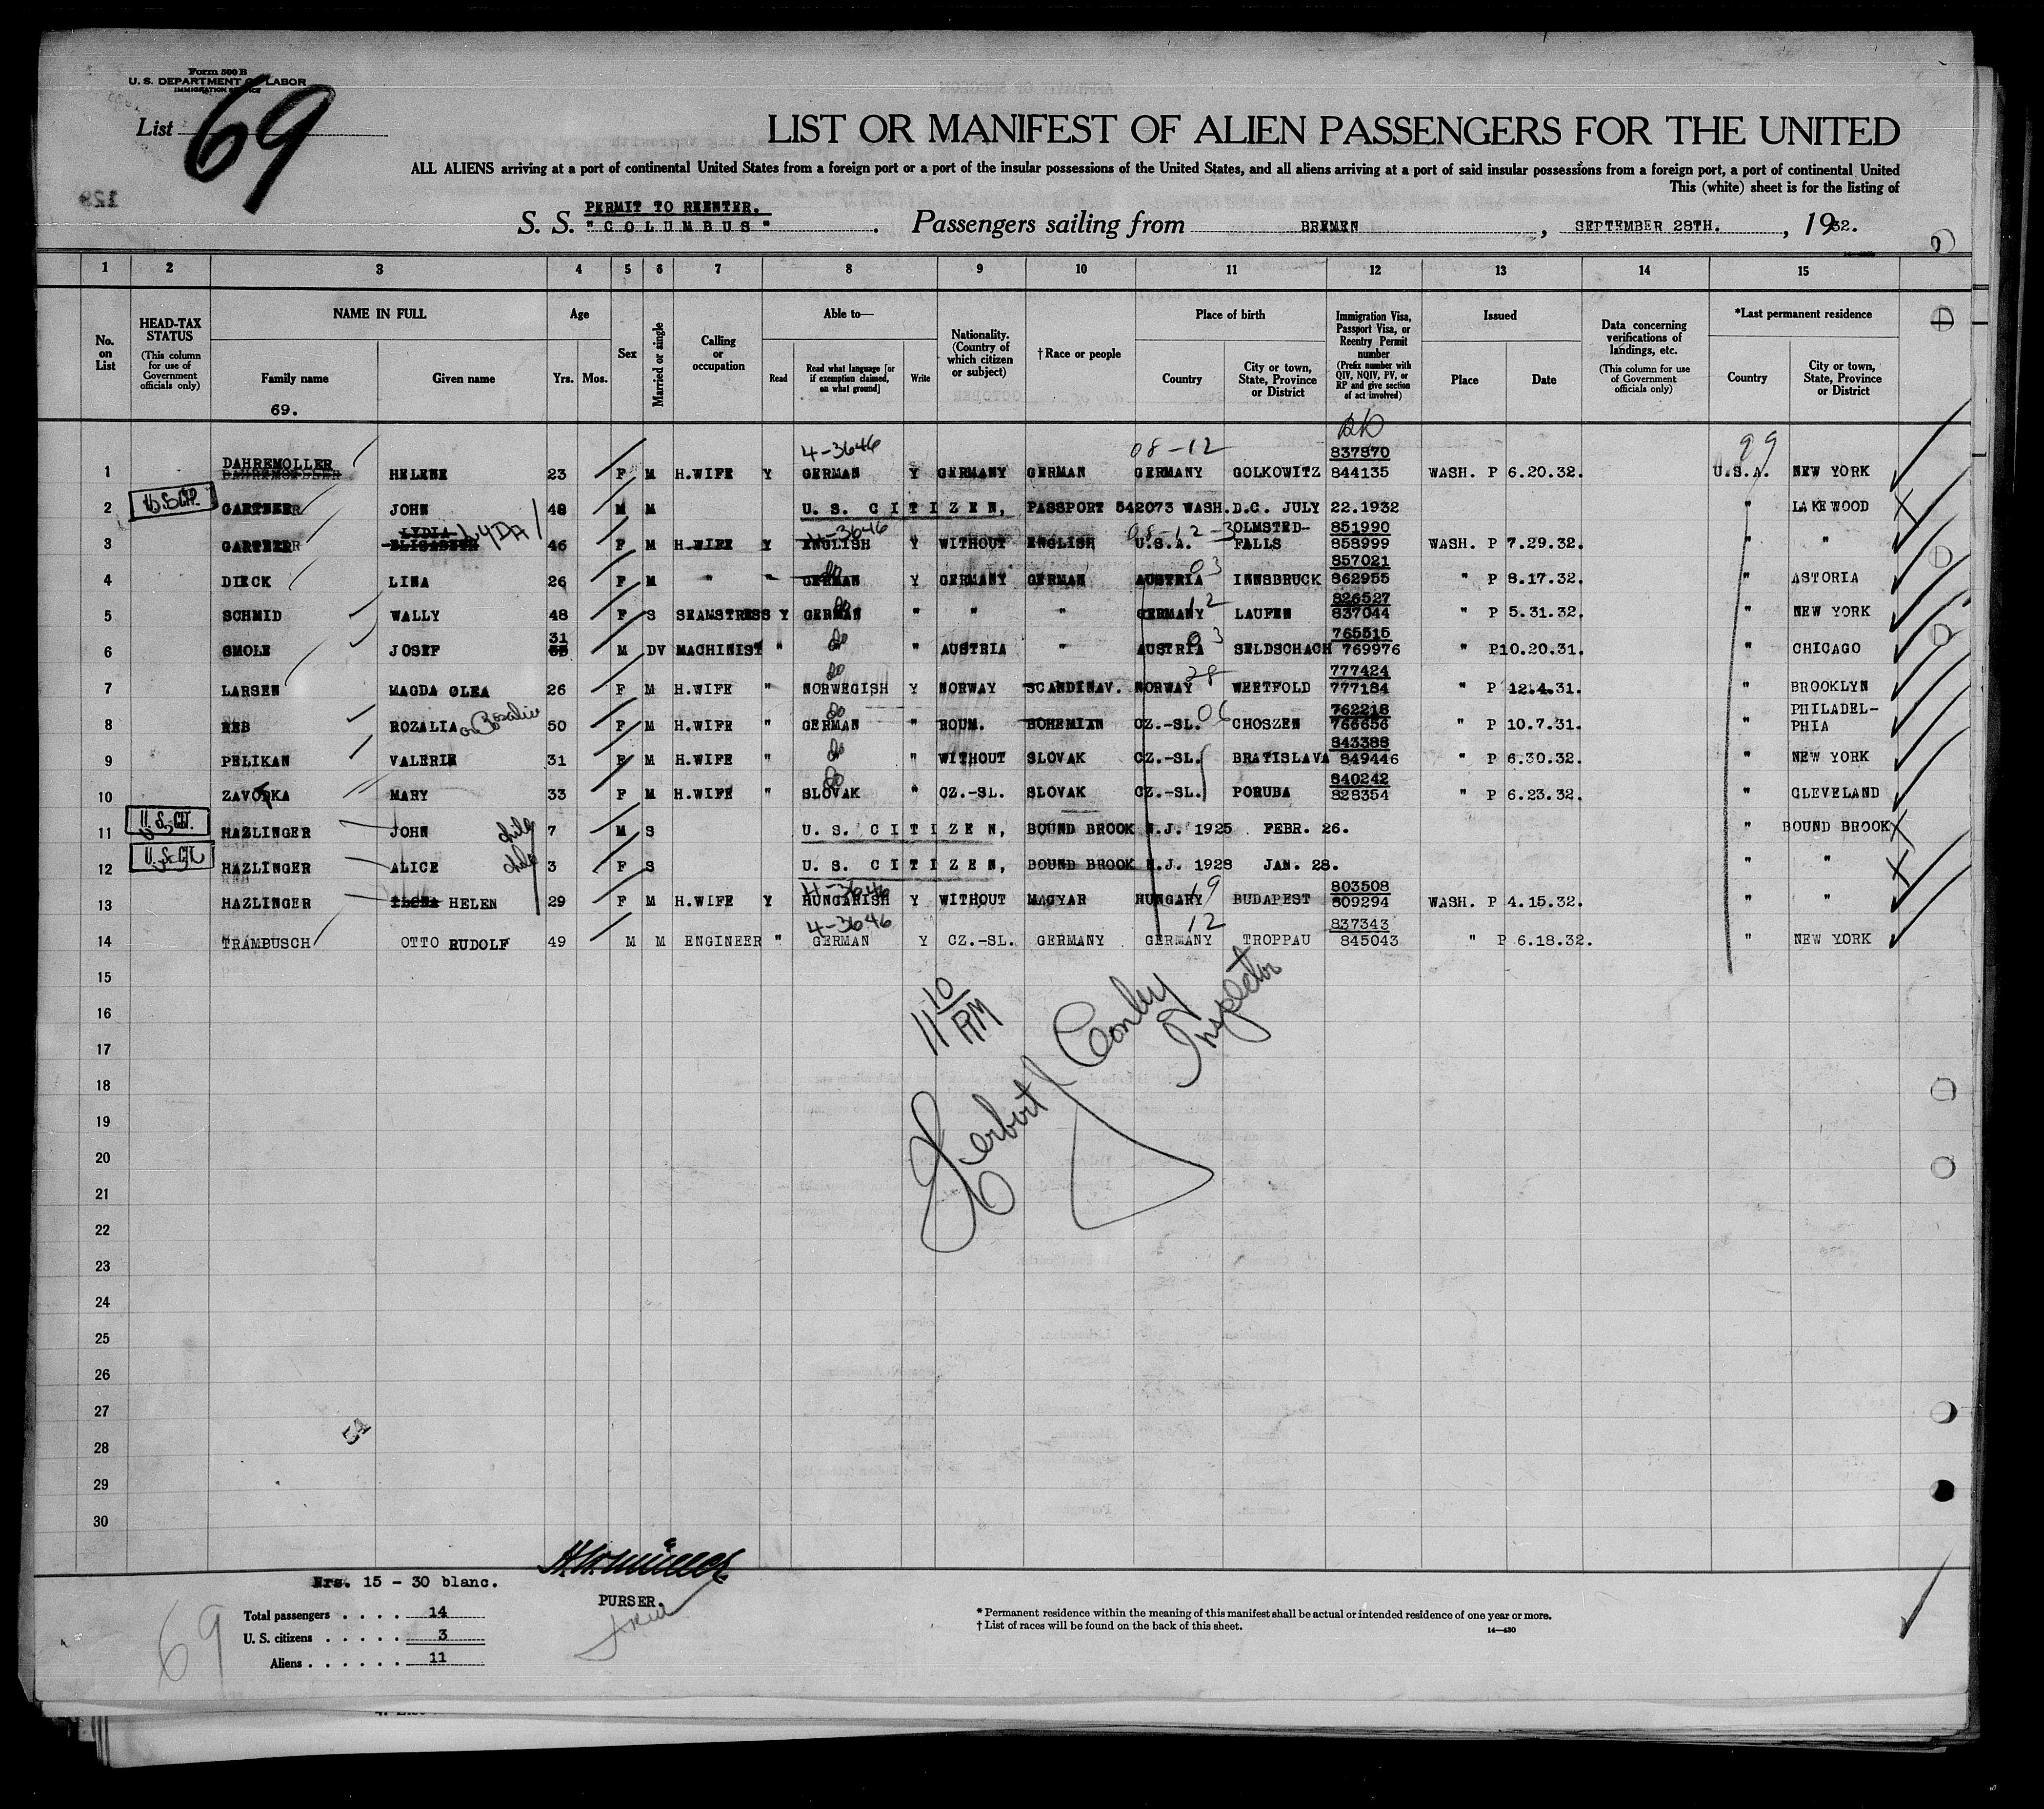 Form 500 B
U. S. DEPARTMENT OF LABOR
IMMIGRATION SERVICE
List 69
LIST OR MANIFEST OF ALIEN PASSENGERS FOR THE UNITED
ALL ALIENS arriving at a port of continental United States from a foreign port or a port of the insular possessions of the United States, and all aliens arriving at a port of said insular possessions from a foreign port, a port of continental United
This (white) sheet is for the listing of
PERMIT TO REENTER.
S. S. "COLUMBUS". Passengers sailing from BREMEN, SEPTEMBER 28TH., 1932.
1 2 3 4 5 6 7 8 9 10 11 12 13 14 15
No. on List
HEAD-TAX STATUS (This column for use of Government officials only)
NAME IN FULL
Family name
Given name
69.
Age
Yrs. Mos.
Sex
Married or single
Calling or occupation
Able to—
Read
Read what language [or if exemption claimed, on what ground]
Write
Nationality. (Country of which citizen or subject)
†Race or people
Place of birth
Country
City or town, State, Province or District
Immigration Visa, Passport Visa, or Reentry Permit number (Prefix number with QIV, NQIV, PV, or RP and give section of act involved)
Issued
Place
Date
Data concerning verifications of landings, etc. (This column for use of Government officials only)
*Last permanent residence
Country
City or town, State, Province or District
4-3646 08-12 837870 99
DAHREMOLLER
1 HELENE 23 F M H.WIFE Y GERMAN Y GERMANY GERMAN GERMANY GOLKOWITZ 844135 WASH. P 6.20.32. U.S.A. NEW YORK
2 U.S.CIT. GARTNER JOHN 48 M M U. S. CITIZEN, PASSPORT 542073 WASH.D.C. JULY 22.1932 " LAKEWOOD
LYDIA LYDA 4-3646 08-12-3 OLMSTED- 851990
3 GARTNER ELISABETH 46 F M H.WIFE Y ENGLISH Y WITHOUT ENGLISH U.S.A. FALLS 858999 WASH. P 7.29.32. " "
do 03 857021
4 DIECK LINA 26 F M " " GERMAN Y GERMANY GERMAN AUSTRIA INNSBRUCK 862955 " P 8.17.32. " ASTORIA
do 12 826527
5 SCHMID WALLY 48 F S SEAMSTRESS Y GERMAN " " " GERMANY LAUFEN 837044 " P 5.31.32. " NEW YORK
31 do 03 765515
6 SMOLE JOSEF M DV MACHINIST " " AUSTRIA " AUSTRIA SELDSCHACH 769976 " P10.20.31. " CHICAGO
do 28 777424
7 LARSEN MAGDA OLEA 26 F M H.WIFE " NORWEGISH Y NORWAY SCANDINAV. NORWAY WESTFOLD 777184 " P 12.4.31. " BROOKLYN
do 06 762218 PHILADEL-
8 REB ROZALIA or Rosalie 50 F M H.WIFE " GERMAN " ROUM. BOHEMIAN CZ.-SL. CHOSZEN 766656 " P 10.7.31. " PHIA
do 843388
9 PELIKAN VALERIE 31 F M H.WIFE " " WITHOUT SLOVAK CZ.-SL. BRATISLAVA 849446 " P 6.30.32. " NEW YORK
do 840242
10 ZAVODKA MARY 33 F M H.WIFE " SLOVAK " CZ.-SL. SLOVAK CZ.-SL. PORUBA 828354 " P 6.23.32. " CLEVELAND
11 U.S.CIT. HAZLINGER JOHN child 7 M S U. S. CITIZEN, BOUND BROOK N.J. 1925 FEBR. 26. " BOUND BROOK
12 U.S.CIT. HAZLINGER ALICE child 3 F S U. S. CITIZEN, BOUND BROOK N.J. 1928 JAN. 28. " "
4-3646 19 803508
13 HAZLINGER ILONA HELEN 29 F M H.WIFE Y HUNGARISH Y WITHOUT MAGYAR HUNGARY BUDAPEST 809294 WASH. P 4.15.32. " "
4-3646 12 837343
14 TRAMBUSCH OTTO RUDOLF 49 M M ENGINEER " GERMAN Y CZ.-SL. GERMANY GERMANY TROPPAU 845043 " P 6.18.32. " NEW YORK
15
16
17
18
19
20
21
22
23
24
25
26
27
28
29
30
11 10 PM
Herbert Conley
Inspector
Nrs. 15 - 30 blanc.
Total passengers . . . . 14
U. S. citizens . . . . . 3
Aliens . . . . . . 11
69
PURSER.
* Permanent residence within the meaning of this manifest shall be actual or intended residence of one year or more.
† List of races will be found on the back of this sheet.
14—430